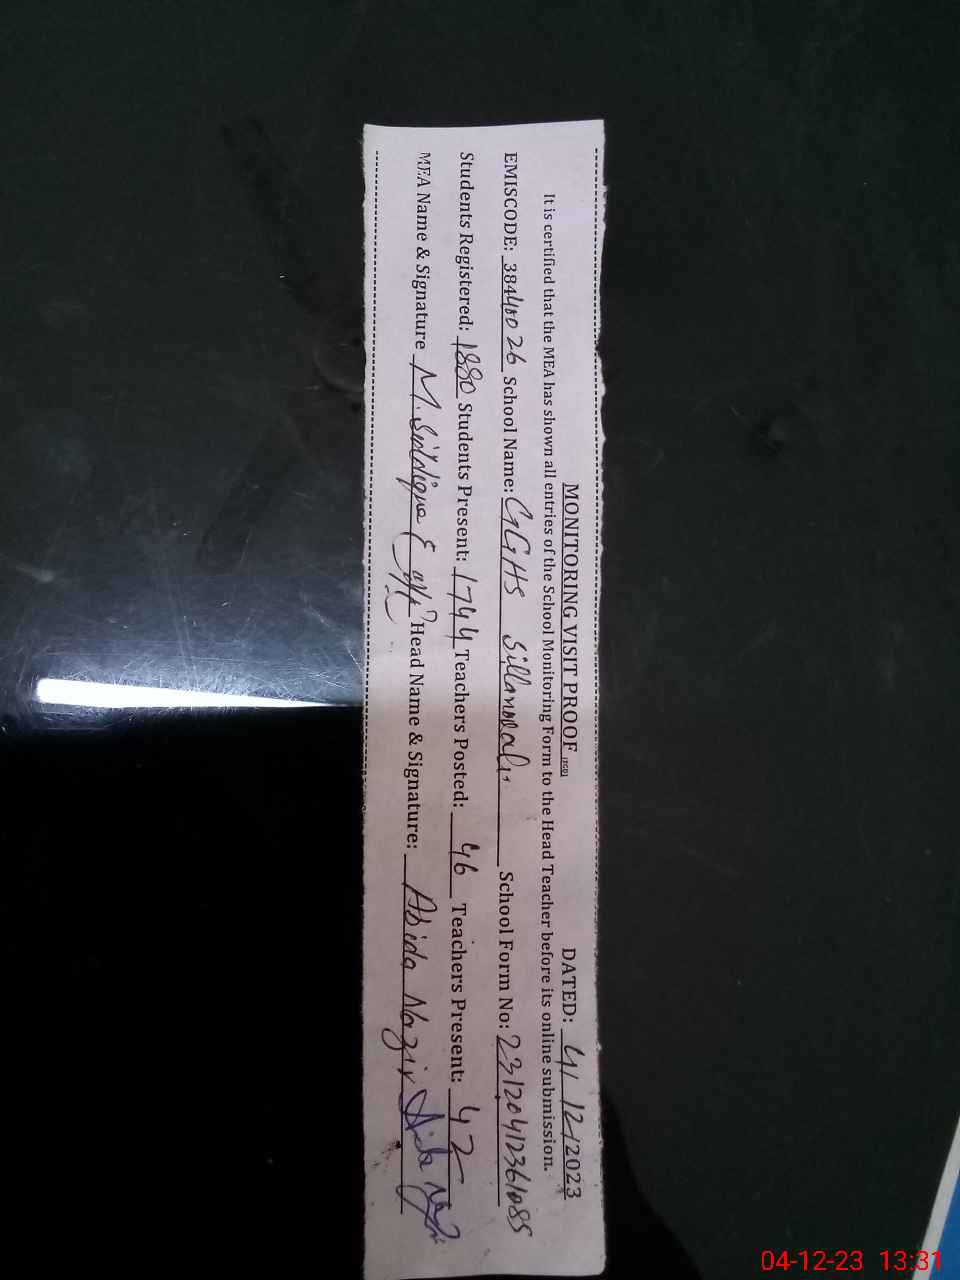 MONITORING VISIT PROOF DATED: 4/12/2023
It is certified that the MEA has shown all entries of the School Monitoring Form to the Head Teacher before its online submission.
EMISCODE: 38440026 School Name: GGHS Sillanwali School Form No: 23120412361085
Students Registered: 1880 Students Present: 1744 Teachers Posted: 46 Teachers Present: 42
MEA Name & Signature M. Siddique Head Name & Signature: Abida Nazir
04-12-23 13:31